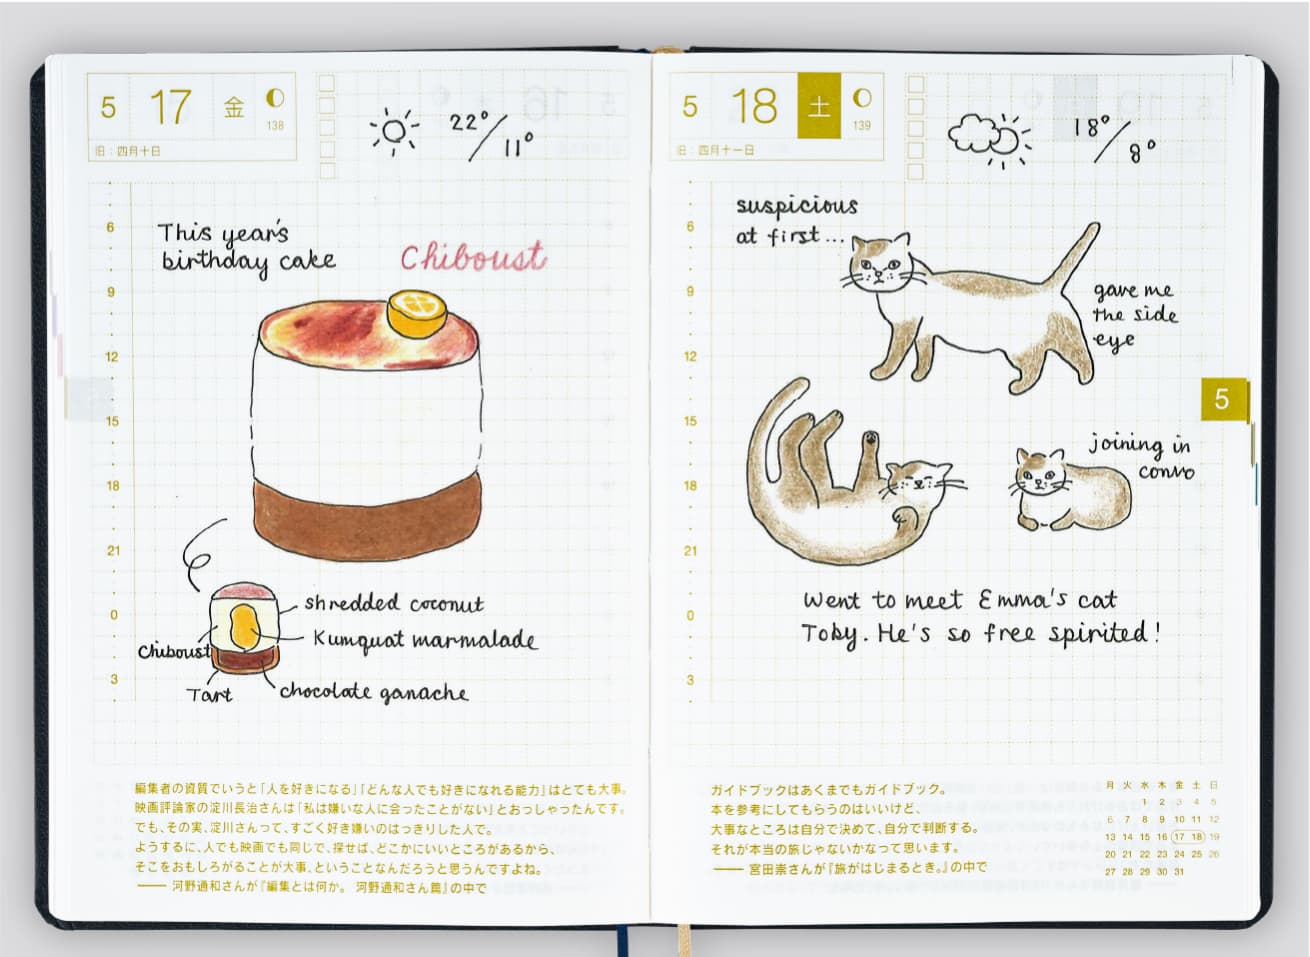 5 17 金
138
旧：四月十日
22°/11°
This year's
birthday cake
Chiboust
6
9
12
15
18
21
0
3
shredded coconut
Kumquat marmalade
Chiboust
Tart
chocolate ganache
編集者の資質でいうと「人を好きになる」「どんな人でも好きになれる能力」はとても大事。
映画評論家の淀川長治さんは「私は嫌いな人に会ったことがない」とおっしゃったんです。
でも、その実、淀川さんって、すごく好き嫌いのはっきりした人で。
ようするに、人でも映画でも同じで、探せば、どこかにいいところがあるから、
そこをおもしろがることが大事、ということなんだろうと思うんですよね。
—— 河野通和さんが『編集とは何か。 河野通和さん篇』の中で
5 18 土
139
旧：四月十一日
18°/8°
suspicious
at first...
gave me
the side
eye
6
9
12
15
18
21
0
3
5
joining in
convo
Went to meet Emma's cat
Toby. He's so free spirited!
ガイドブックはあくまでもガイドブック。
本を参考にしてもらうのはいいけど、
大事なところは自分で決めて、自分で判断する。
それが本当の旅じゃないかなって思います。
—— 宮田崇さんが『旅がはじまるとき。』の中で
月 火 水 木 金 土 日
1 2 3 4 5
6 7 8 9 10 11 12
13 14 15 16 17 18 19
20 21 22 23 24 25 26
27 28 29 30 31